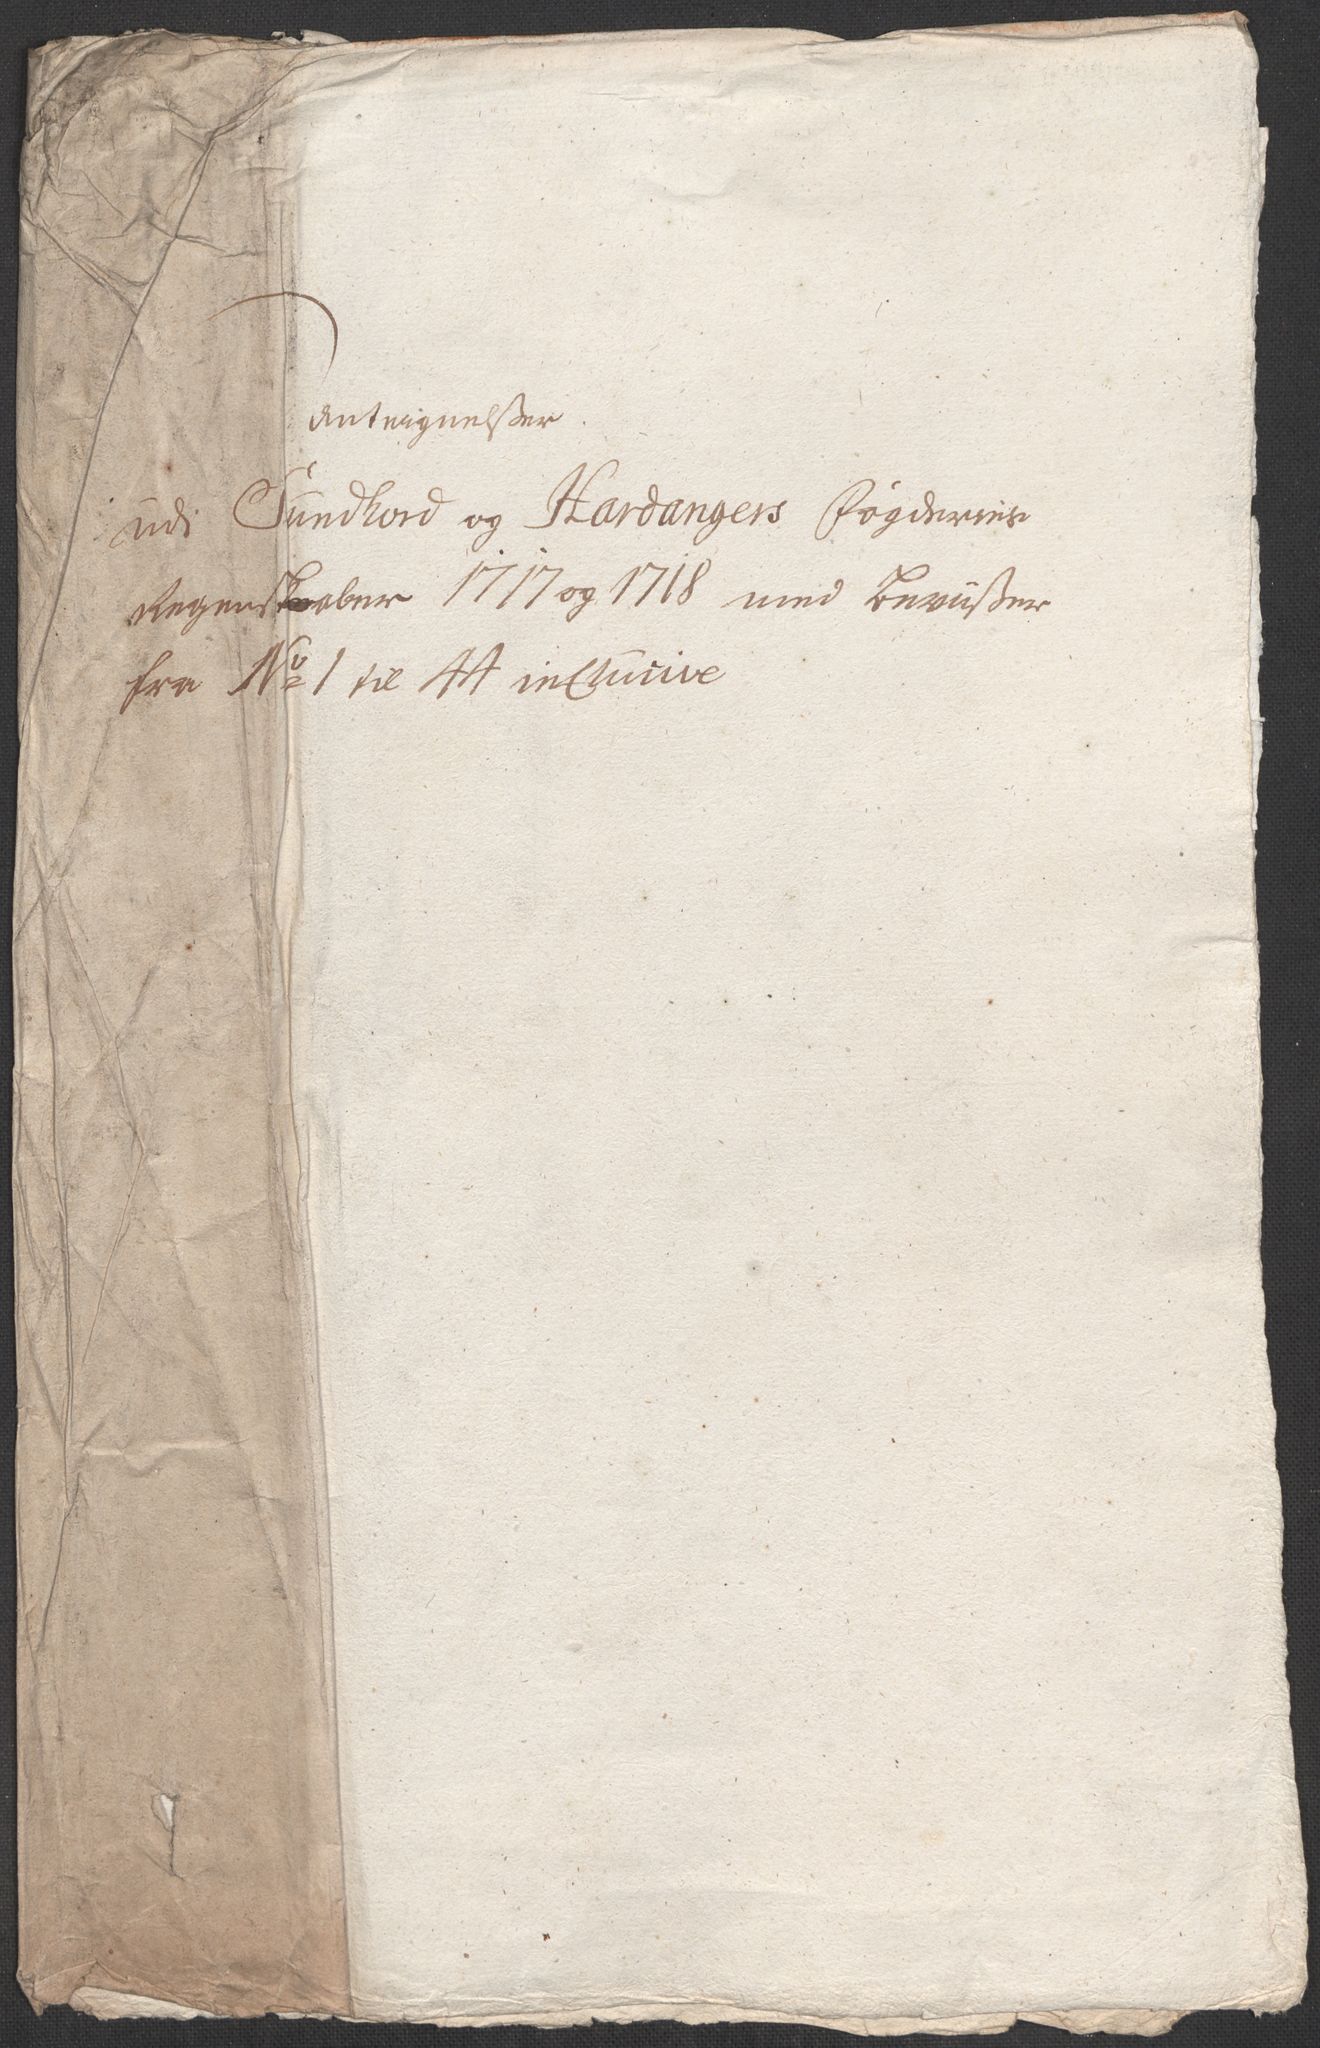 Anteignelßer
udi Sundhord og Hardangers Fögderies
Regenskaber 1717 og 1718 med Beviißer
fra No 1 til 44 inclusive